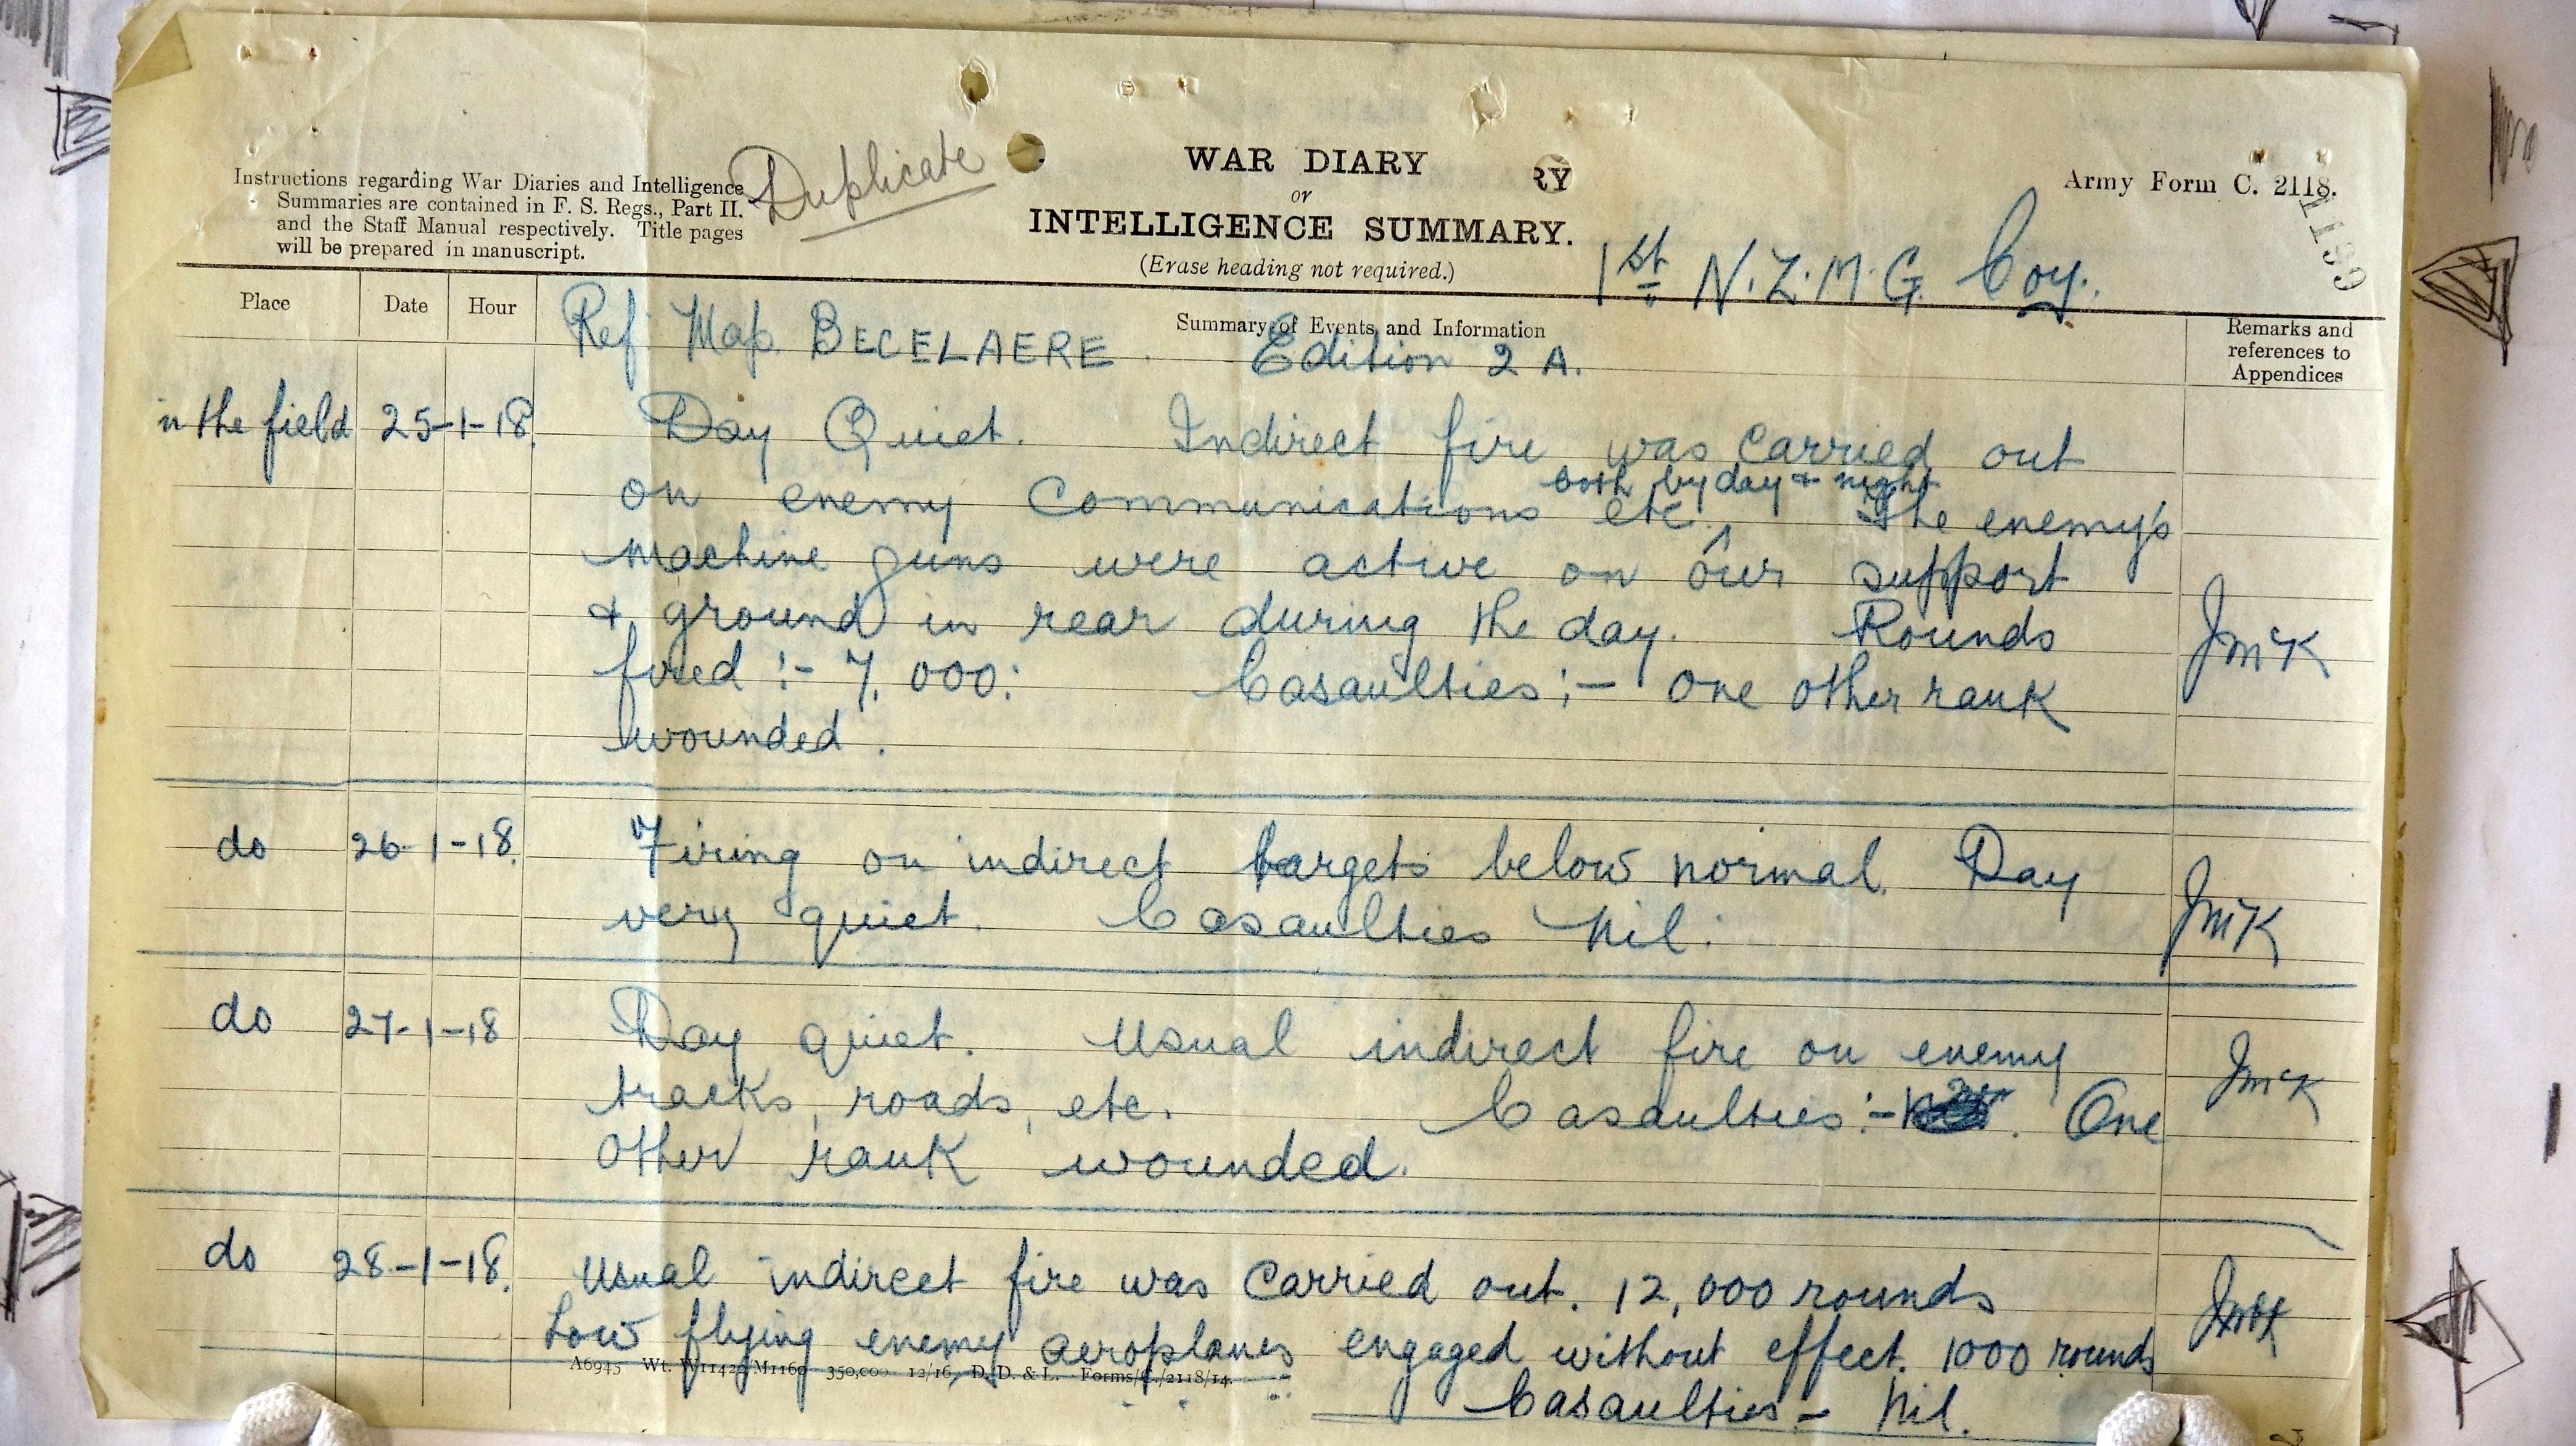 Instructions regarding War Diaries and Intelligence
Summaries are contained in F. S. Regs., Part II.
and the Staff Manual respectively. Title pages
will be prepared in manuscript.
Duplicate
WAR DIARY
or
INTELLIGENCE SUMMARY.
(Erase heading not required.)
RY
Army Form C. 2118.
1st N.Z.M.G. Coy.
Place
Date
Hour
Summary of Events and Information
Remarks and
references to
Appendices
Ref Map BECELAERE. Edition 2 A.
in the field 25-1-18. Day Quiet. Indirect fire was carried out
both by day & night
on enemy communications etc. The enemy's
machine guns were active on our support
& ground in rear during the day. Rounds
fired :- 7,000: Casaulties :- One other rank
wounded.
JMcK
do 26-1-18. Firing on indirect targets below normal. Day
very quiet. Casaulties Nil.
JMcK
do 27-1-18 Day quiet. Usual indirect fire on enemy
tracks, roads, etc. Casaulties :- One
other rank wounded.
JMcK
do 28-1-18. Usual indirect fire was carried out. 12,000 rounds
Low flying enemy aeroplanes engaged without effect. 1000 rounds
Casaulties - Nil.
JMcK
A6945 Wt. W11422/M1160 350,000 12/16 D. D. & L. Forms/C./2118/14.